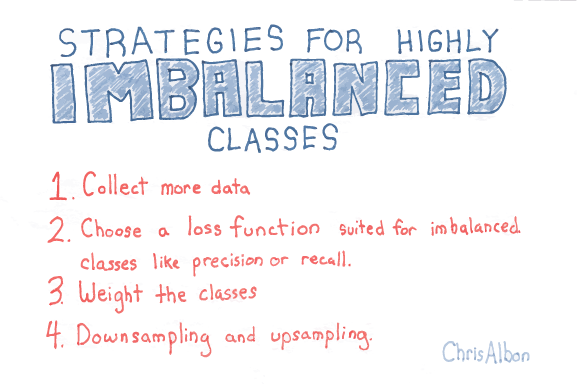 STRATEGIES FOR HIGHLY
IMBALANCED
CLASSES
1. Collect more data
2. Choose a loss function suited for imbalanced
classes like precision or recall.
3. Weight the classes
4. Downsampling and upsampling.
Chris Albon